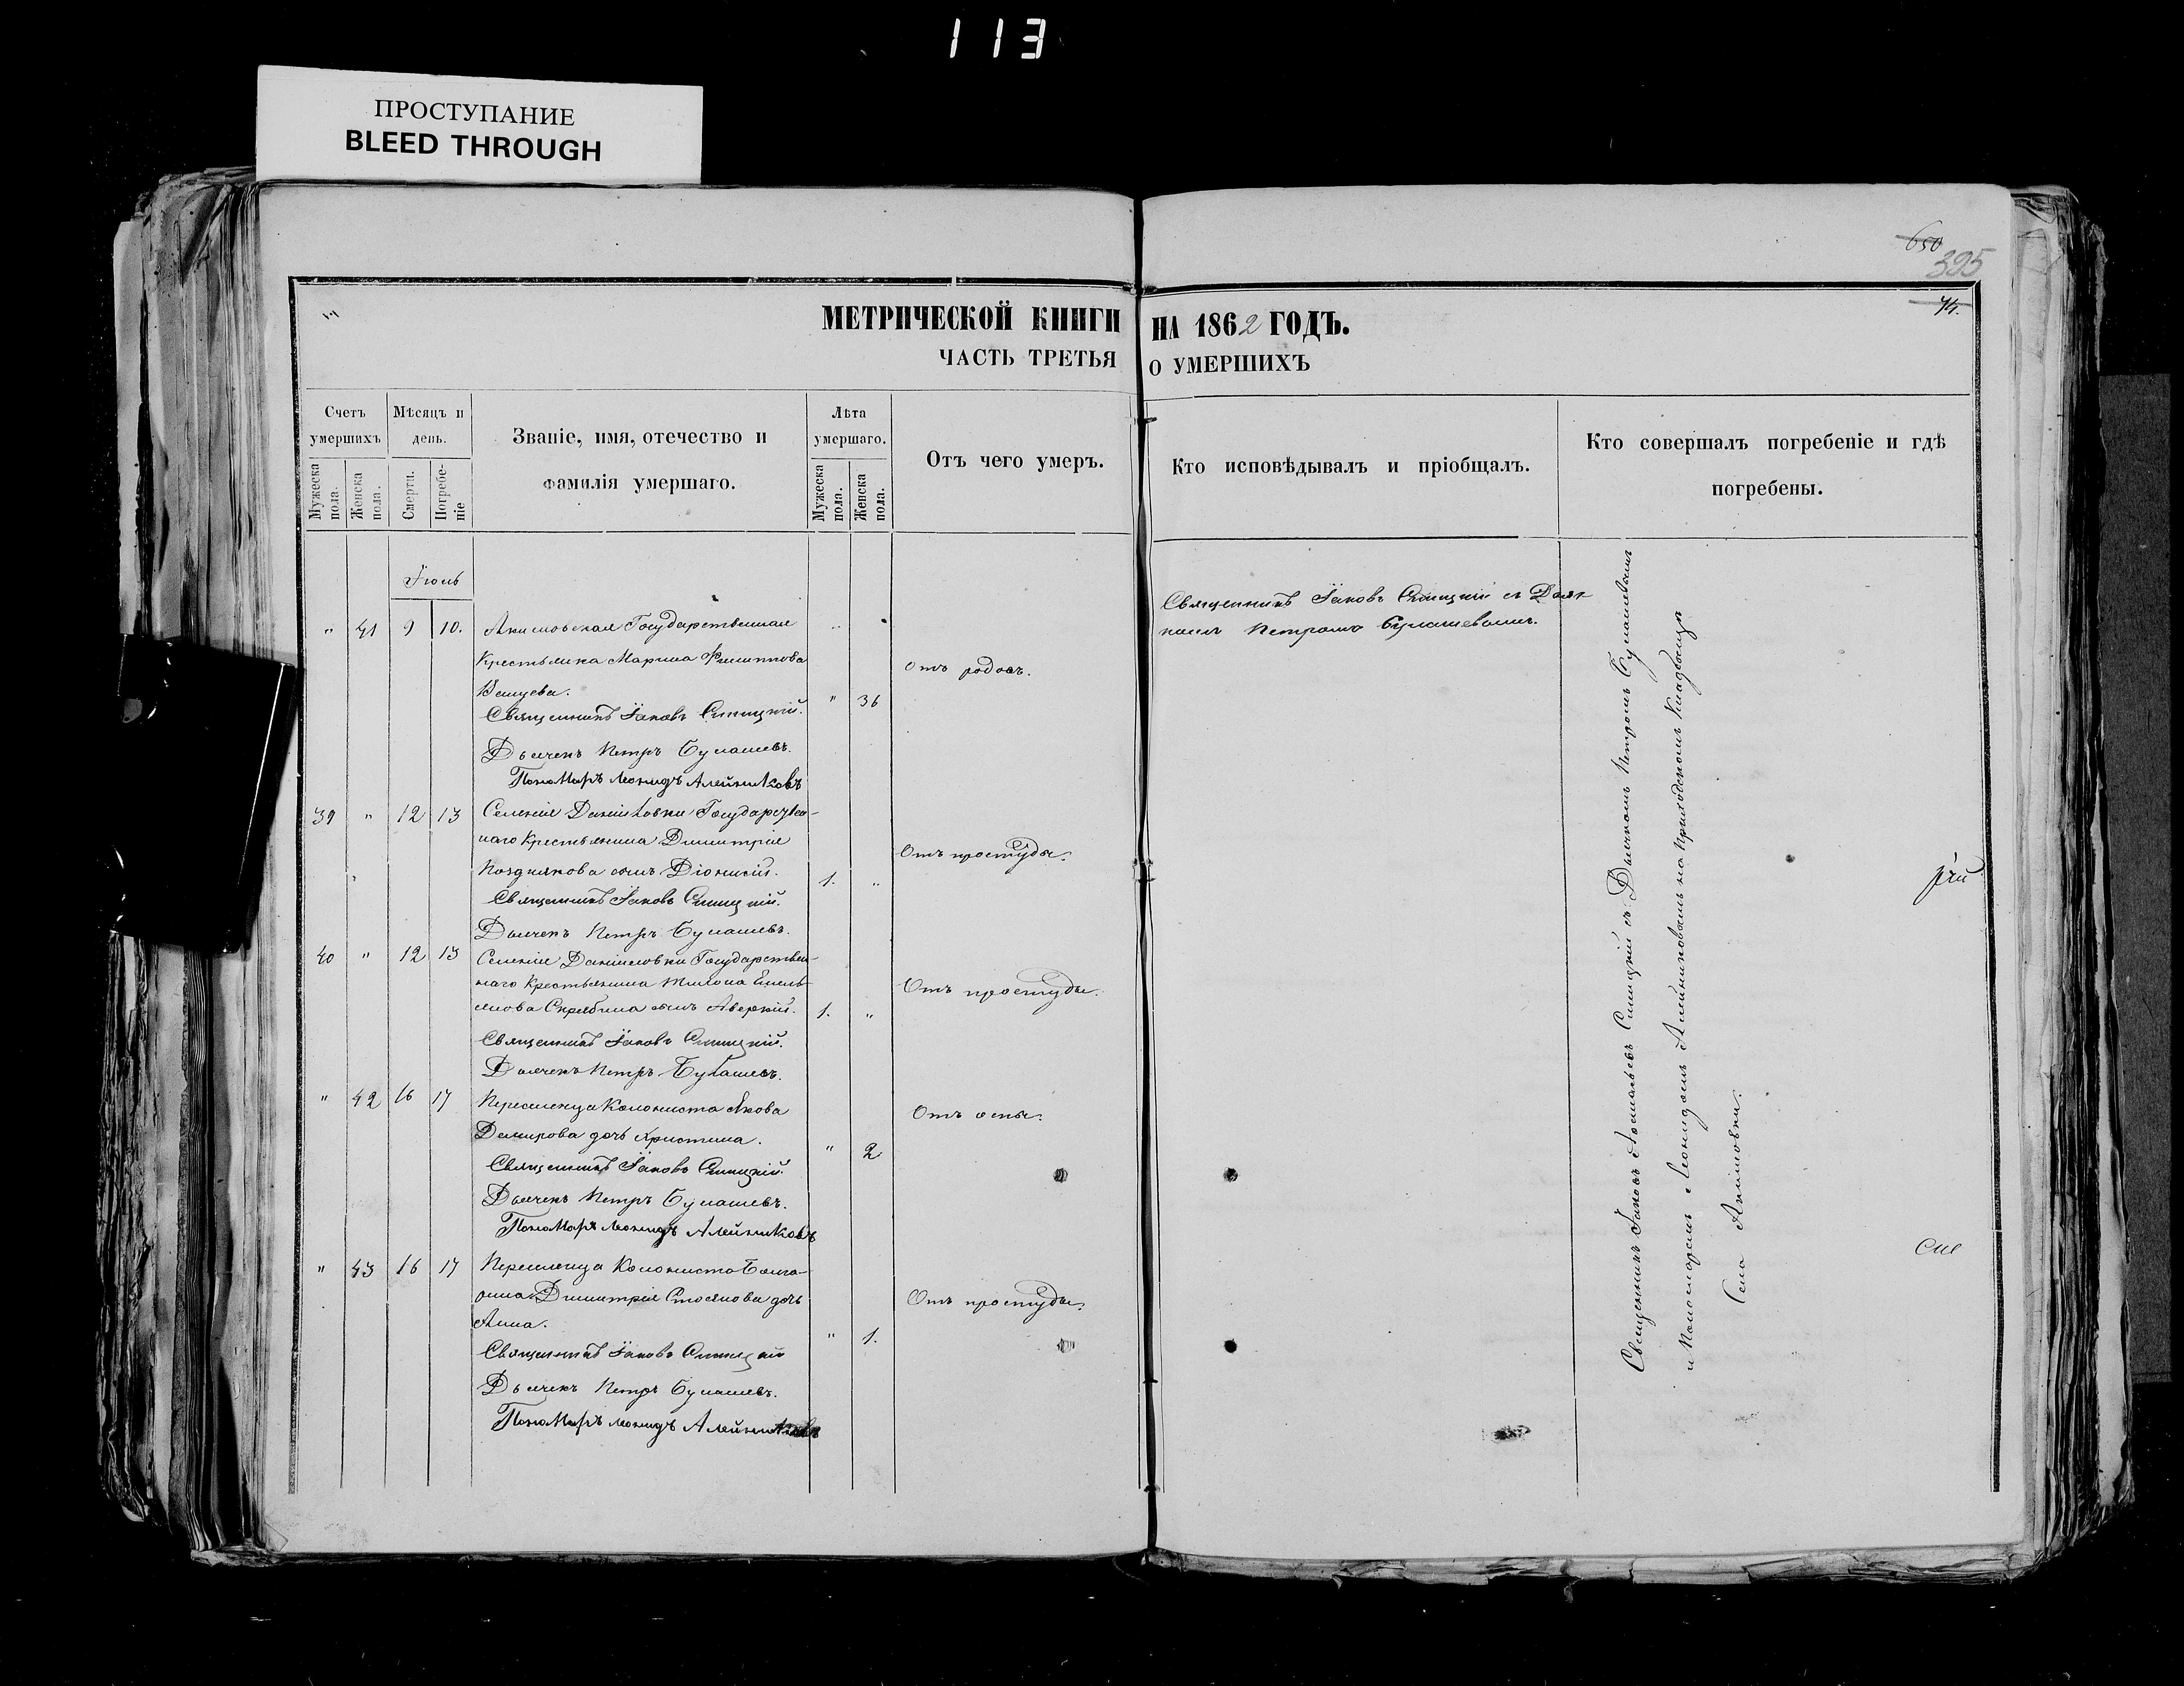 113
ПРОСТУПАНИЕ
BLEED THROUGH
650
395
МЕТРИЧЕСКОЙ КНИГИ НА 1862 ГОДЪ.
ЧАСТЬ ТРЕТЬЯ О УМЕРШИХЪ
Счетъ умершихъ
Мужеска пола.
Женска пола.
Мѣсяцъ и день.
Смерти.
Погребеніе
Званіе, имя, отечество и фамилія умершаго.
Лѣта умершаго.
Мужеска пола.
Женска пола.
Отъ чего умеръ.
Кто исповѣдывалъ и пріобщалъ.
Кто совершалъ погребеніе и гдѣ погребены.
Іюль
" 41 9 10. Акимовская Государственная
Крестьянка Марина Филиппова
Отъ родовъ.
" 36
Священникъ Іаковъ Синицкій.
Дьячекъ Петръ Булашевъ.
Пономарь Леонидъ Алейниковъ
Священникъ Іаковъ Синицкій съ Дьяч-
комъ Петромъ Булашевымъ.
39 " 12 13 Селенія Даниловки Государствен-
наго Крестьянина Димитрія
Позднякова сынъ Діонисій.
Отъ простуды.
1. "
Священникъ Іаковъ Синицкій.
Дьячекъ Петръ Булашевъ.
40 " 12 13 Селенія Даниловки Государствен-
наго Крестьянина Тихона Емель-
янова Скрябина сынъ Аверкій.
Отъ простуды.
1. "
Священникъ Іаковъ Синицкій.
Дьячекъ Петръ Булашевъ.
" 42 16 17 Переселенца Колониста Якова
дочь Христина.
Отъ оспы.
" 2
Священникъ Іаковъ Синицкій.
Дьячекъ Петръ Булашевъ.
Пономарь Леонидъ Алейниковъ
" 43 16 17 Переселенца Колониста Болга-
рина Димитрія Стоянова дочь
Анна.
Отъ простуды.
" 1.
Священникъ Іаковъ Синицкій
Дьячекъ Петръ Булашевъ.
Пономарь Леонидъ Алейниковъ
Священникъ Іаковъ Синицкій съ Дьячкомъ Петромъ Булашевымъ
и Пономаремъ Леонидомъ Алейниковымъ на Приходскомъ Кладбищѣ
Села Акимовки.